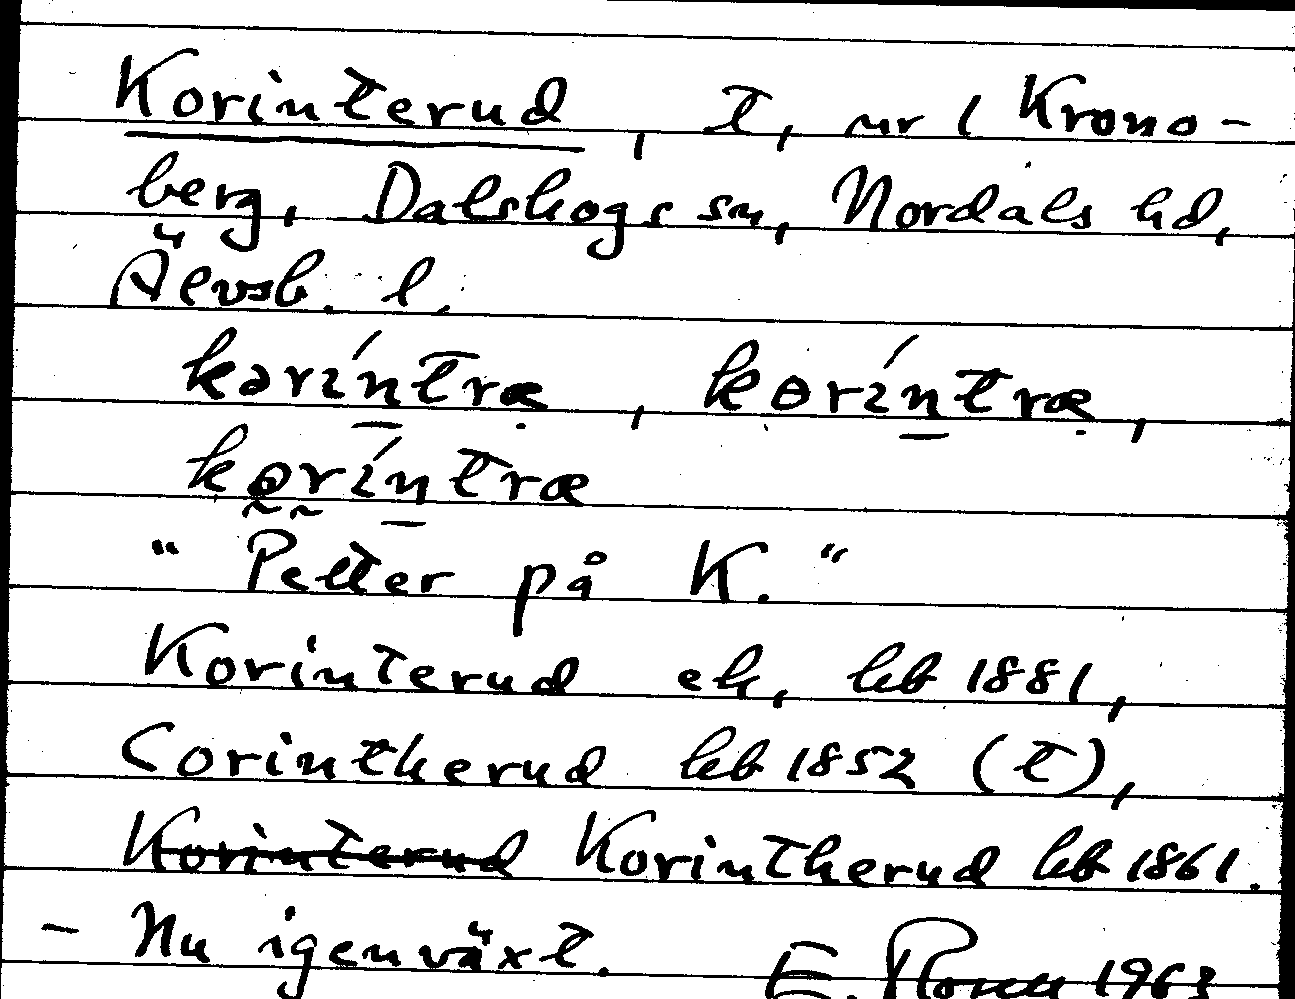 Korinterud, t, nr 1 Krono-
berg, Dalskogs sn, Nordals hd,
Älvsb. l.
kəríntræ, kɵríntræ,
kɵríntræ
"Petter på K."
Korinterud ek, hfb 1881,
Corintherud hfb 1852 (t),
Korinterud Korintherud hfb 1861.
- Nu igenväxt. E. 1963